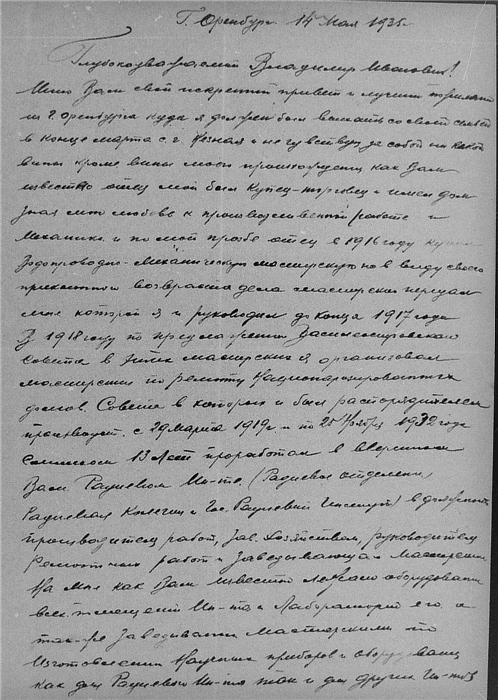 Г. Оренбург 14 Мая 1935
Глубокоуважаемый Владимир Иванович!
Шлю Вам свой искренний привет и лучшие пожелания
из г. Оренбурга куда я должен был выехать со своей семьей
в конце марта с.г. Не зная и не чувствую за собой никакой
вины кроме вины моего происхождения как Вам
известно отец мой был купец-торговец и имел дом
Зная мою любовь к производственной работе и
Механике и по моей просьбе отец в 1916 году купил
Водопроводно-Механическую мастерскую но в виду своего
преклонного возраста дела мастерской передал
мне которой я и руководил до конца 1917 года
В 1918 году по предложению Василеостровского
Совета в этих мастерских я организовал
мастерские по ремонту Национализированных
домов. Совета в которых и был распорядителем
производст. с 29 Марта 1919 г. и по 25 Ноября 1932 года
13 лет проработал в вверенном
Вам Радиевом Ин-те (Радиевое отделение,
Радиевая Коллегия и Гос. Радиевый Институт) в должности
производителя работ, Зав. Хозяйством, руководителя
ремонтных работ и Заведывающего Мастерскими
На мне как Вам известно лежало оборудование
всех помещений Ин-та и Лабораторий его, а
так-же Заведывание Мастерскими по
Изготовлению Научных приборов и оборудования
как для Радиевого Ин-та так и для других Ин-тов